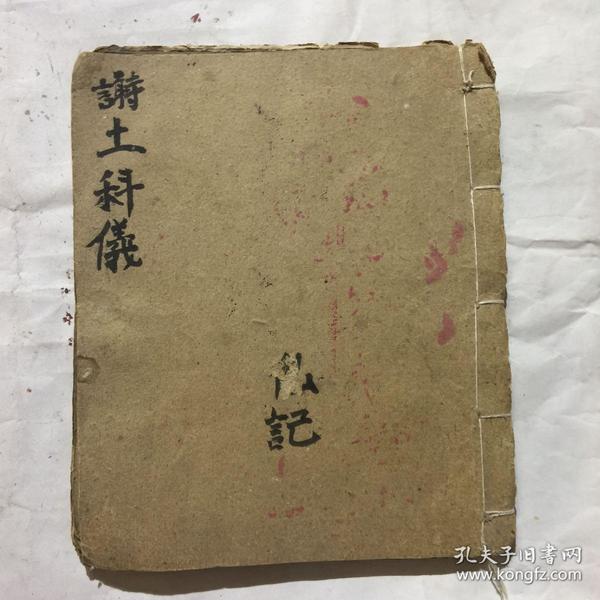 謝土科儀
記
孔夫子旧书网
www.kongfz.com